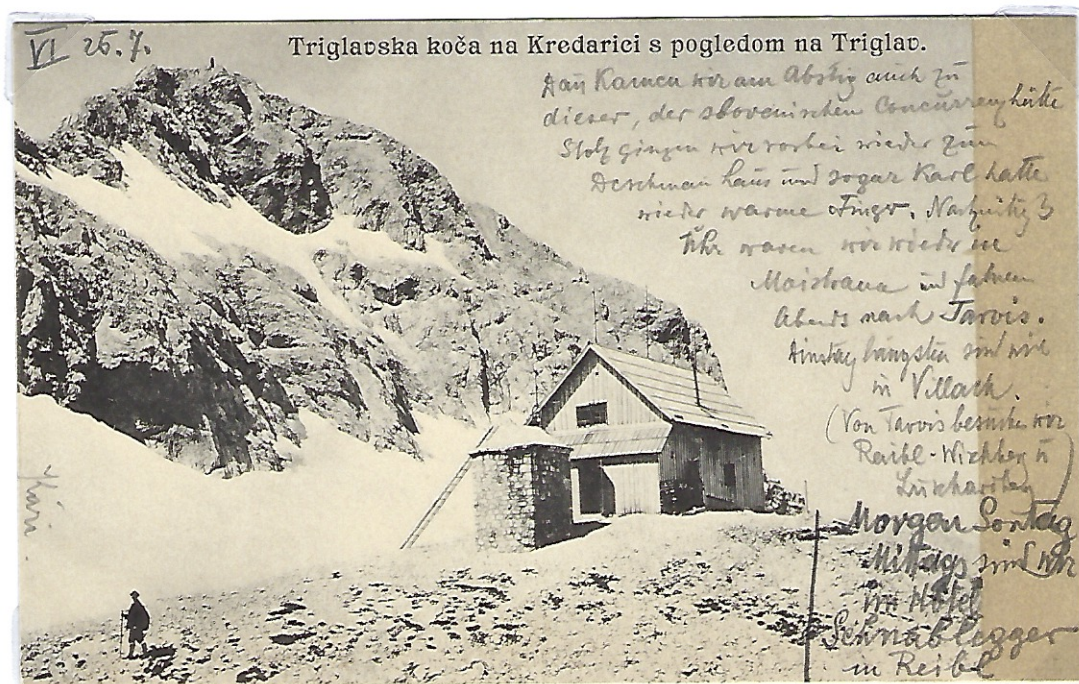 VI 25.7.
Triglavska koča na Kredarici s pogledom na Triglav.
Dan Kamen wir am Abstig auch zu
dieser, der slovenischen Concurrenzhütte
Stolz gingen wir vorbei wieder zum
Deschman haus und sogar Karl hatte
wieder warme Finger. 3
Uhr waren wir wieder in
Moistrana und fahren
Abends nach Tarvis.
sind wir
in Villach.
(Von Tarvis besuchen wir
Raibl - u
Luschariberg)
Morgen Sontag
Mittags sind wir
im Hotel
Schnablegger
in Reibl